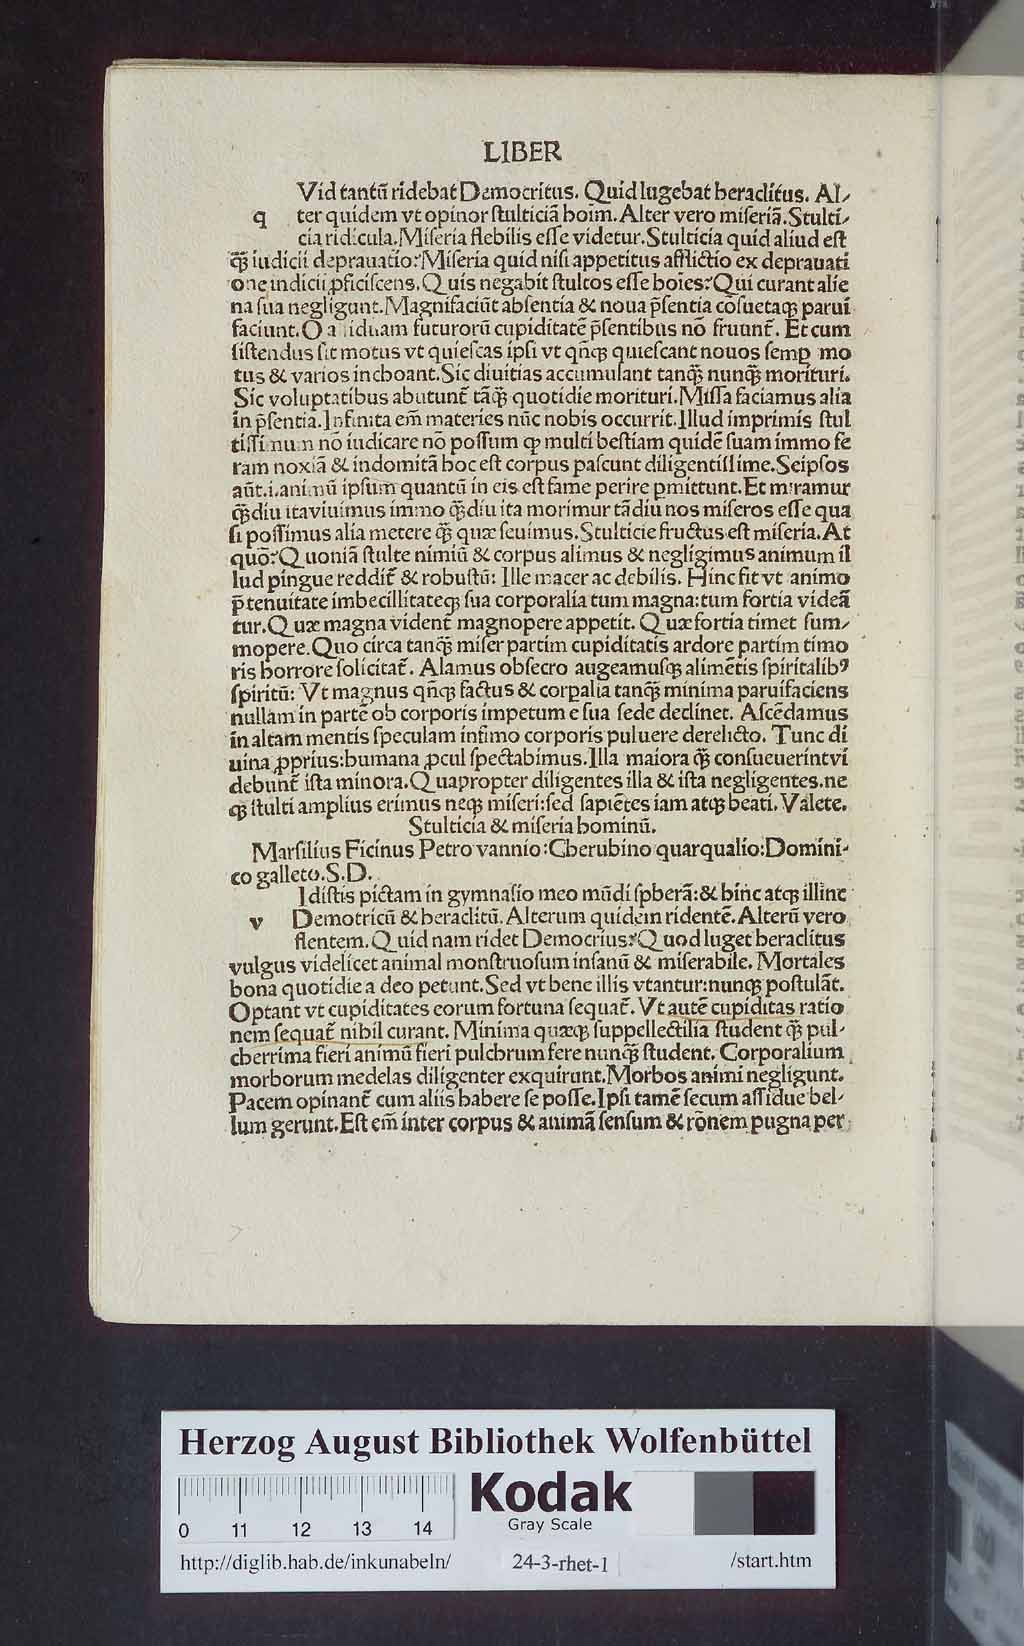 LIBER
Vid tantū ridebat Democritus. Quid lugebat heraclitus. Al⸗
q ter quidem vt opinor stulticiā hoim. Alter vero miseriā. Stulti⸗
cia ridicula. Miseria flebilis esse videtur. Stulticia quid aliud est
q̄ꝫ iudicii deprauatio? Miseria quid nisi appetitus afflictio ex deprauati
one iudicii ꝓficiscens. Quis negabit stultos esse hoīes? Qui curant alie
na sua negligunt. Magnifaciūt absentia & noua p̄sentia cōsuetaqꝫ parui
faciunt. O assiduam futurorū cupiditatē p̄sentibus nō fruunt̄. Et cum
sistendus sit motus vt quiescas ipsi vt qn̄qꝫ quiescant nouos semꝑ mo
tus & varios inchoant. Sic diuitias accumulant tanq̄ꝫ nunq̄ꝫ morituri.
Sic voluptatibus abutunt̄ tāq̄ꝫ quotidie morituri. Missa faciamus alia
in p̄sentia. Infinita em̄ materies nūc nobis occurrit. Illud imprimis stul
tissimum nō iudicare nō possum ꝙ multi bestiam quidē suam immo fe
ram noxiā & indomitā hoc est corpus pascunt diligentissime. Seipsos
aūt .i. animū ipsum quantū in eis est fame perire ꝑmittunt. Et miramur
q̄ꝫdiu ita viuimus immo q̄ꝫdiu ita morimur tādiu nos miseros esse qua
si possimus alia metere q̄ꝫ quæ seuimus. Stulticie fructus est miseria. At
quō? Quoniā stulte nimiū & corpus alimus & negligimus animum il
lud pingue reddit̄ & robustū: Ille macer ac debilis. Hinc fit vt animo
p̄ tenuitate imbecillitateqꝫ sua corporalia tum magna: tum fortia videā
tur. Quæ magna vident̄ magnopere appetit. Quæ fortia timet sum⸗
mopere. Quo circa tanq̄ꝫ miser partim cupiditatis ardore partim timo
ris horrore solicitat̄. Alamus obsecro augeamusqꝫ alimētis spiritalibꝰ
spiritū: Vt magnus qn̄qꝫ factus & corpalia tanq̄ꝫ minima paruifaciens
nullam in partē ob corporis impetum e sua sede declinet. Ascēdamus
in altam mentis speculam infimo corporis puluere derelicto. Tunc di
uina ꝓprius: humana ꝓcul spectabimus. Illa maiora q̄ꝫ consueuerint vi
debunt̄ ista minora. Quapropter diligentes illa & ista negligentes. ne
qꝫ stulti amplius erimus neqꝫ miseri: sed sapiētes iam atqꝫ beati. Valete.
Stulticia & miseria hominū.
Marsilius Ficinus Petro vannio: Cherubino quarqualio: Domini⸗
co galleto. S. D.
Idistis pictam in gymnasio meo mūdi spherā: & hinc atqꝫ illinc
v Demotricū & heraclitū. Alterum quidem ridentē. Alterū vero
flentem. Quid nam ridet Democrius? Quod luget heraclitus
vulgus videlicet animal monstruosum insanū & miserabile. Mortales
bona quotidie a deo petunt. Sed vt bene illis vtantur: nunqꝫ postulāt.
Optant vt cupiditates eorum fortuna sequat̄. Vt autē cupiditas ratio
nem sequat̄ nihil curant. Minima quæqꝫ suppellectilia student q̄ꝫ pul⸗
cherrima fieri animū fieri pulchrum fere nunq̄ꝫ student. Corporalium
morborum medelas diligenter exquirunt. Morbos animi negligunt.
Pacem opinant̄ cum aliis habere se posse. Ipsi tamē secum assidue bel⸗
lum gerunt. Est em̄ inter corpus & animā sensum & rōnem pugna per
Herzog August Bibliothek Wolfenbüttel
Kodak
Gray Scale
0 11 12 13 14
http://diglib.hab.de/inkunabeln/ 24-3-rhet-1 /start.htm